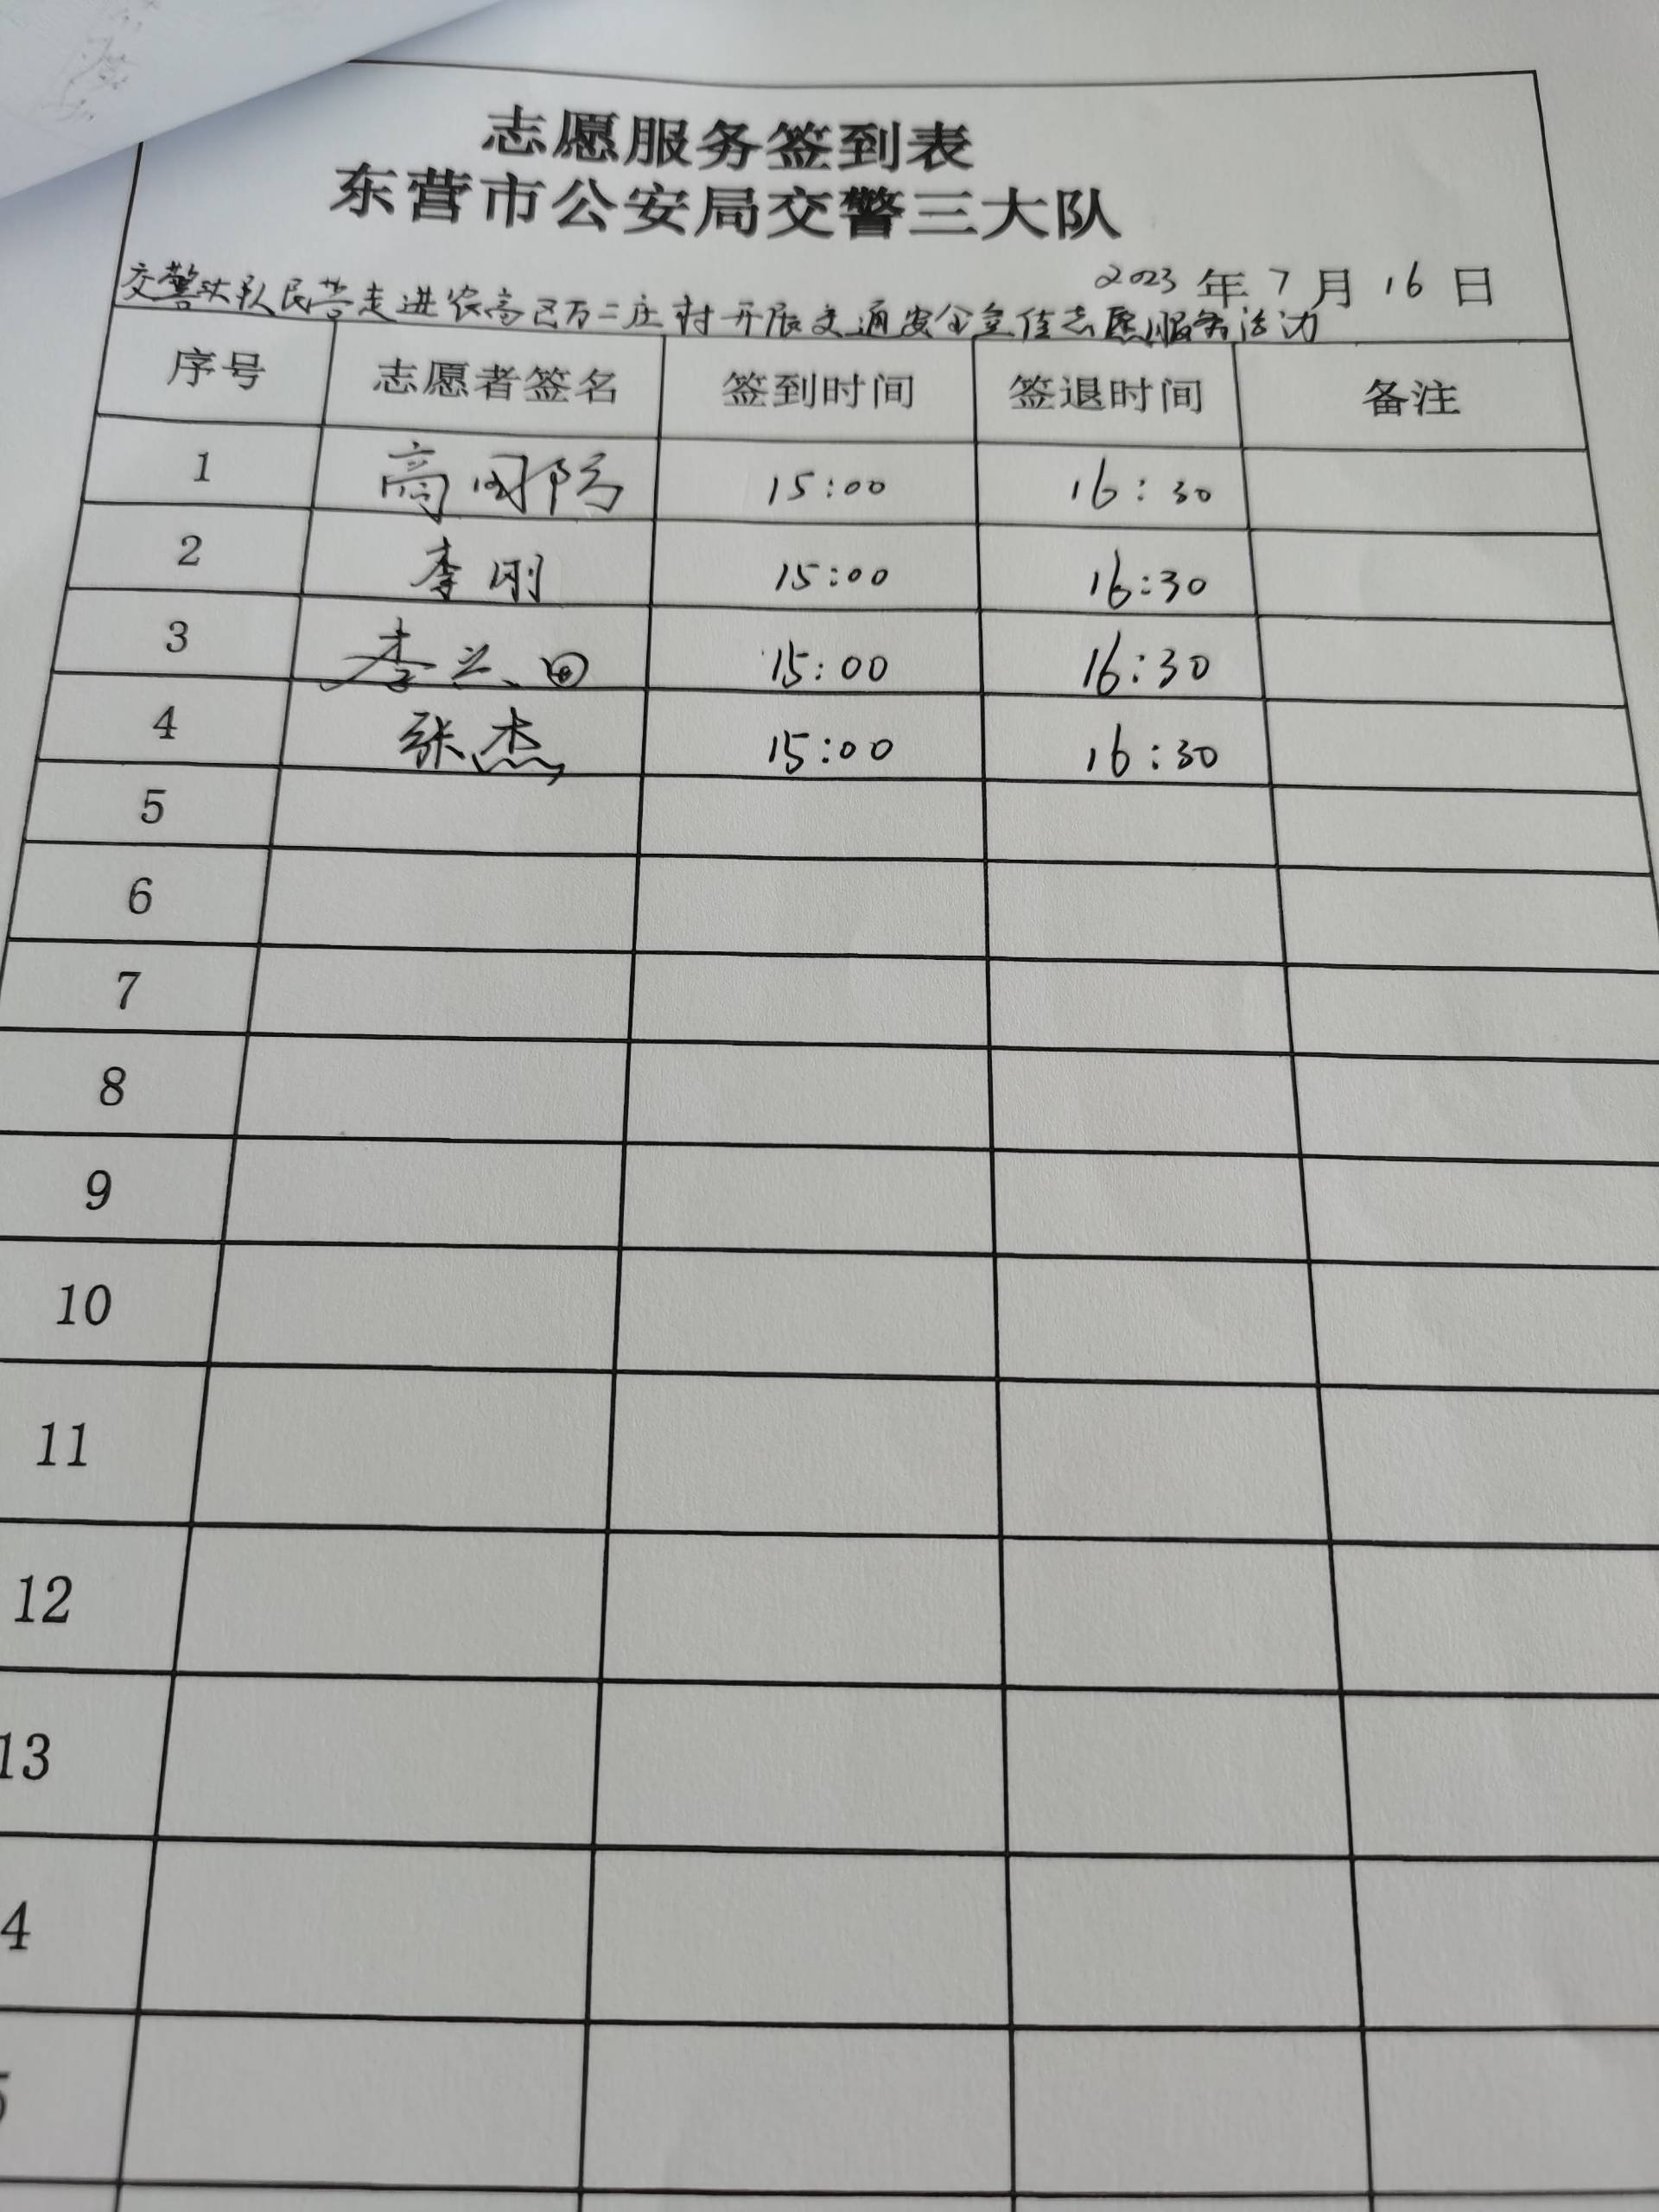 志愿服务签到表
东营市公安局交警三大队
2023 年 7 月 16 日
交警大队民营走进农高区万二庄村开展交通安全宣传志愿服务活动
序号 志愿者签名 签到时间 签退时间 备注
1 高国防 15:00 16:30
2 李刚 15:00 16:30
3 李兰 15:00 16:30
4 张杰 15:00 16:30
5
6
7
8
9
10
11
12
13
4
5